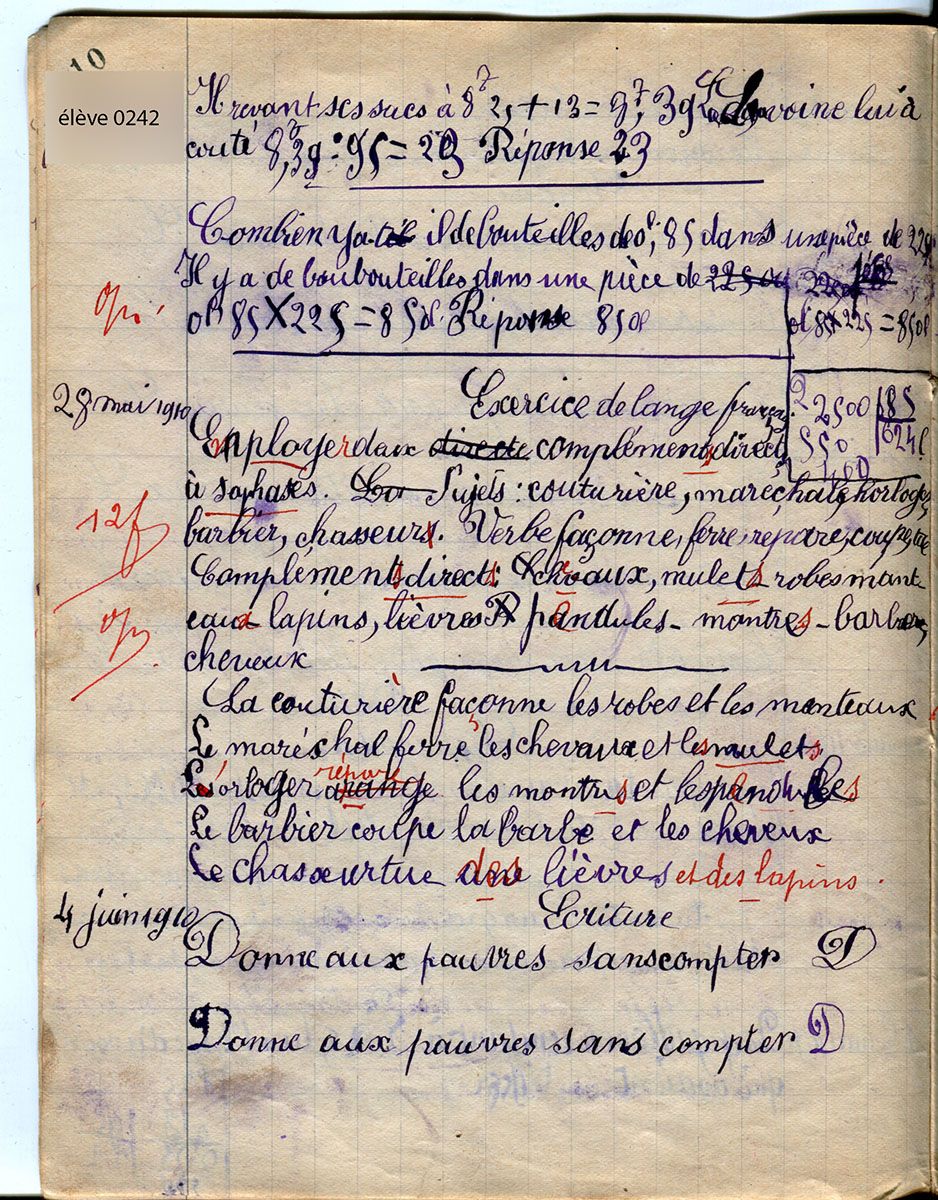 10
élève 0242
Il revant ses sacs à 8 25 + 13 = 8, 39 L avoine lui a
couté 8,39 : 95 = 23 Réponse 23
Combien y a-t-il il de bouteilles de 0l, 85 dans une pièce de 225
Il y a de boubouteilles dans une pièce de 225
0l 85 X 225 = 850l Réponse 850l
0l 85 X 225 = 850l
op.
2 2500 | 85
550 | 624
400
28 mai 1910
Exercice de lange français
Employer deux directe compléments directs
à sa phases. La Sujets : couturière, marechale, hortoger,
12f
barbier, chasseurs. Verbe façonne, ferre, répare, coupe, tue
Compléments directs chevaux, mulets robes mant
op.
eaux lapins, lièvres pandules - montres - barbe,
cheveux
La couturière façonne les robes et les manteaux
Le maréchal ferre les chevaux et les mulets
répare
L'orloger arange les montres et les pendules
Le barbier coupe la barbe et les cheveux
Le chaseur tue des lièvres et des lapins.
4 juin 1910
Ecriture
Donne aux pauvres sans compter D
Donne aux pauvres sans compter D